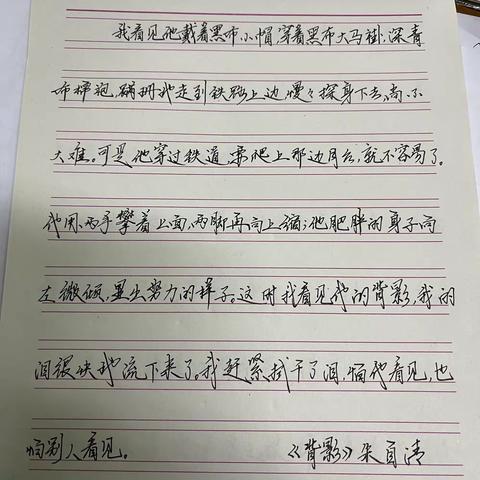 我看见他戴着黑布小帽,穿着黑布大马褂,深青
布棉袍,蹒跚地走到铁路上边,慢々探身下去,尚不
大难。可是他穿过铁道,要爬上那边月台,就不容易了。
他用两手攀着上面,两脚再向上缩;他肥胖的身子向
左微倾,显出努力的样子。这时我看见他的背影,我的
泪很快地流下来了。我赶紧拭干了泪,怕他看见,也
怕别人看见。 《背影》朱自清